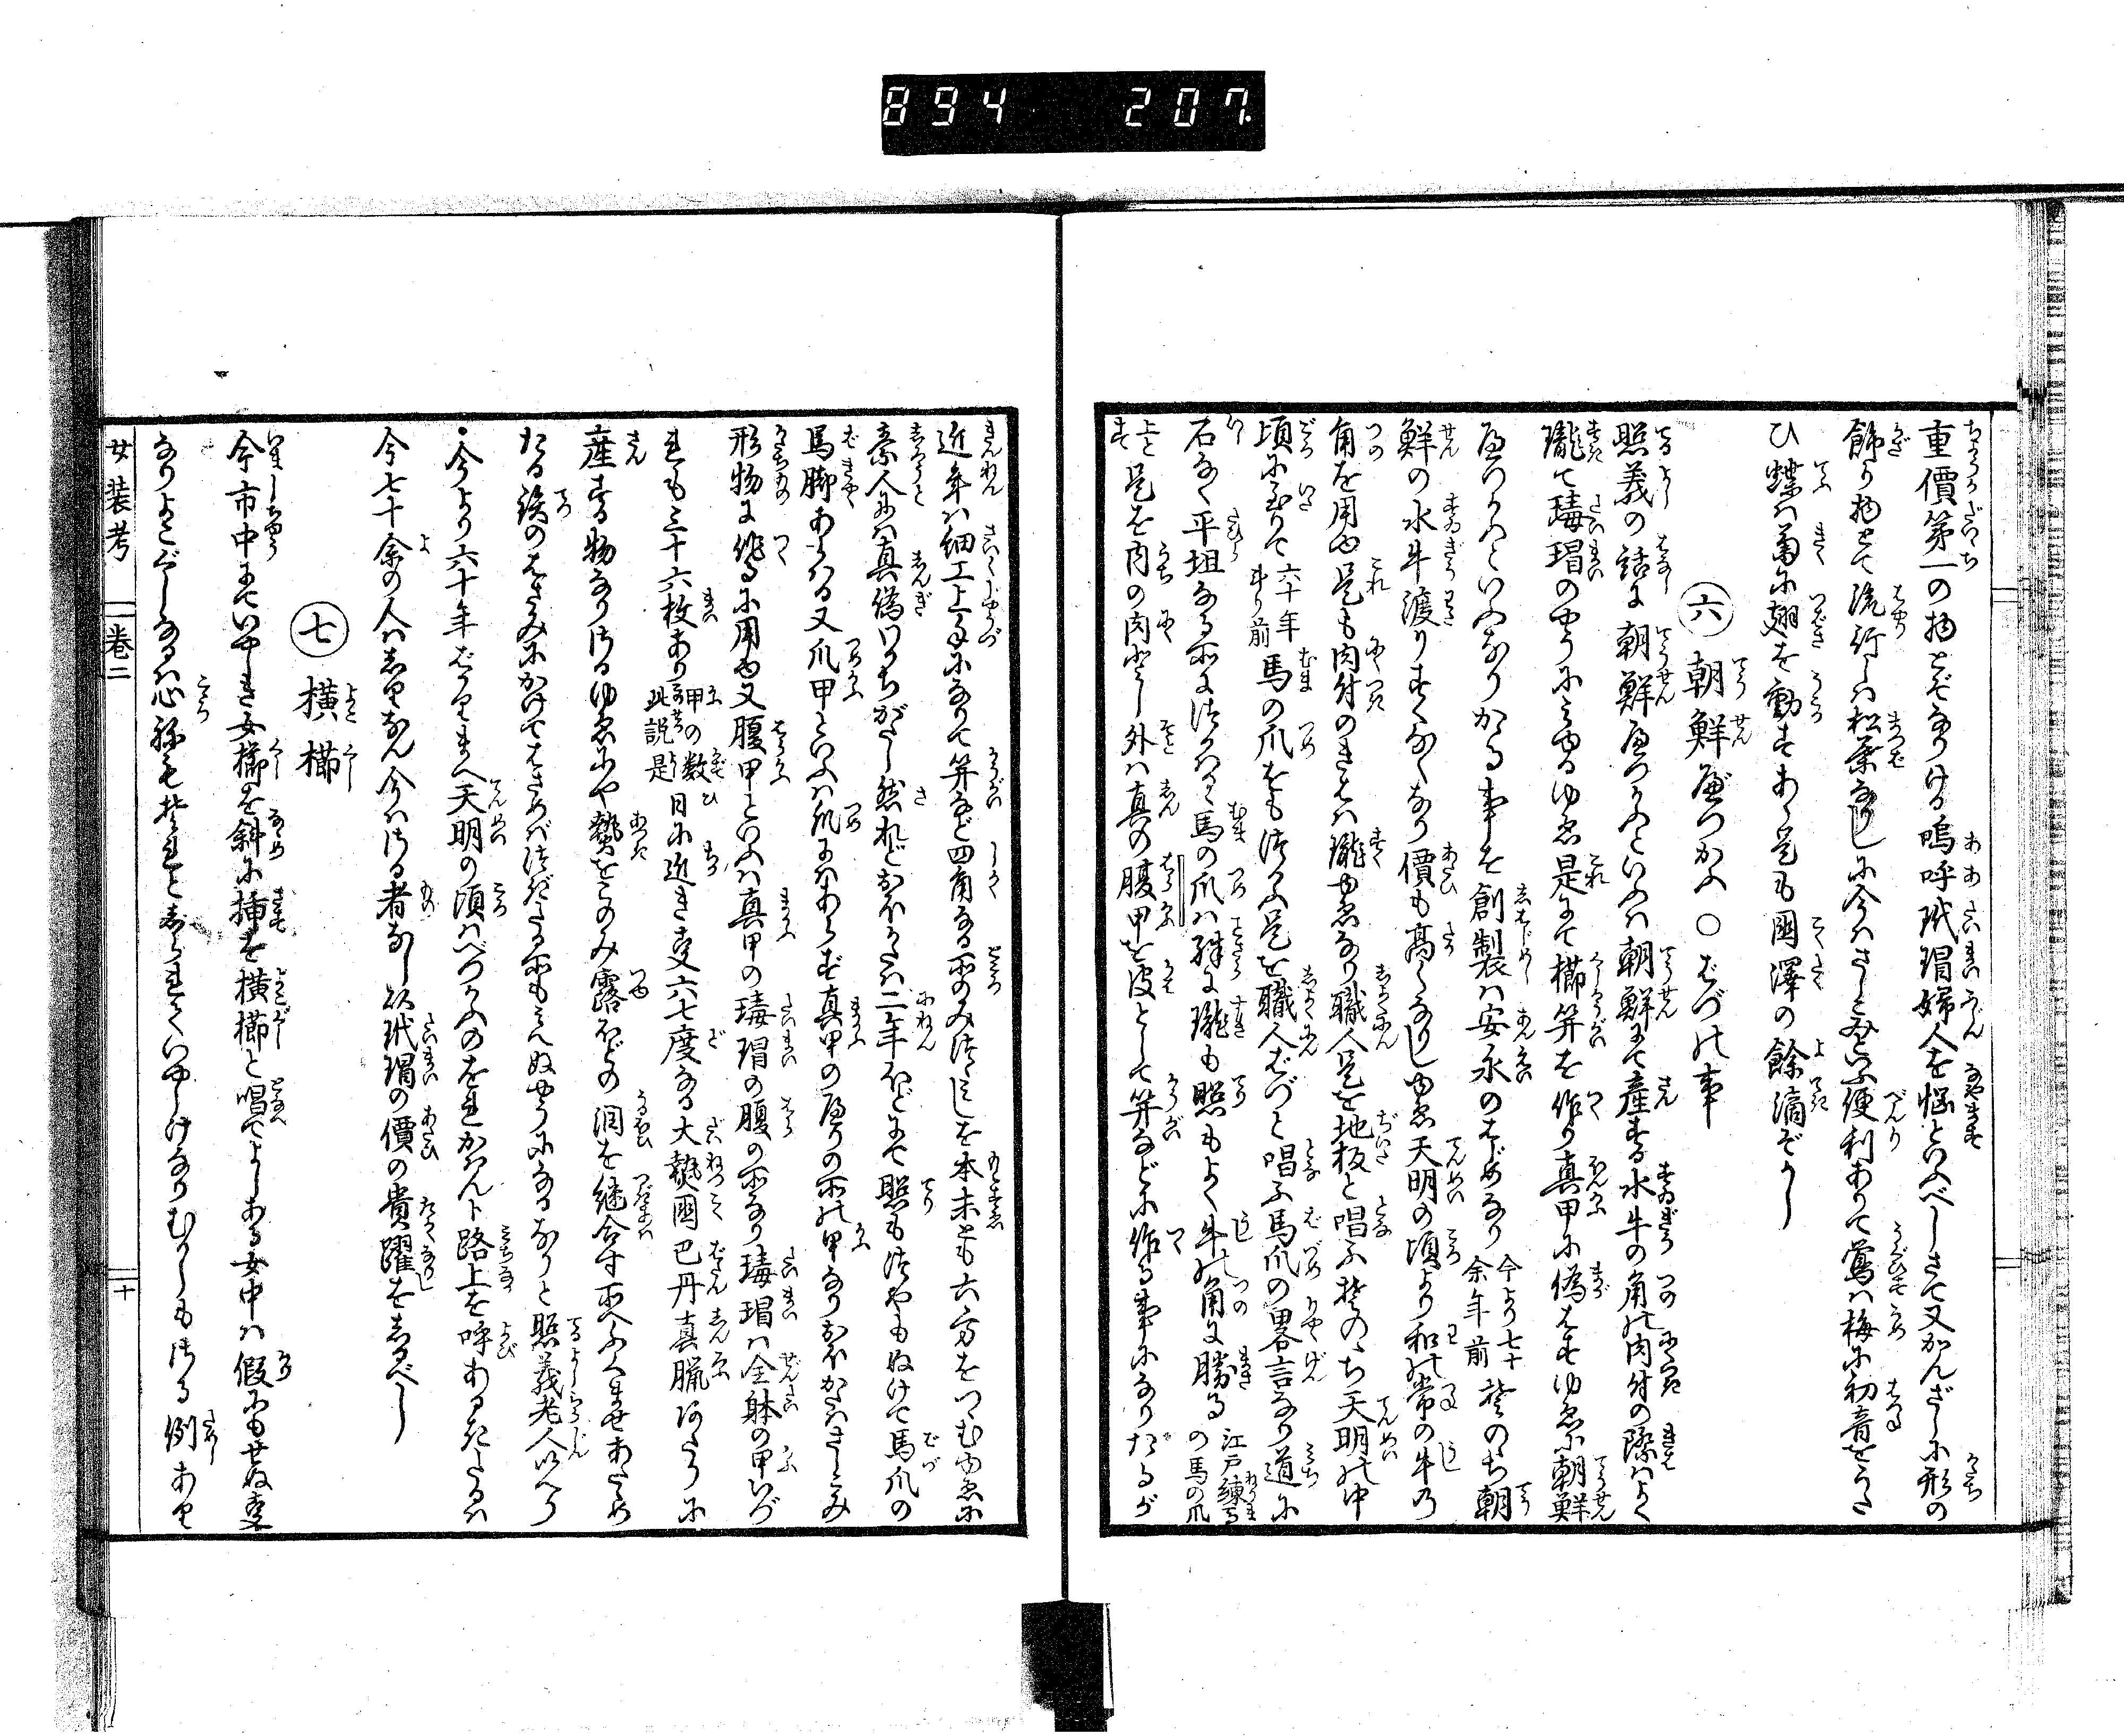 894 207.
重價第一の物とぞなりける嗚呼玳瑁婦人を悩といふべしさて又かんざしに形の
飾り物とて流行しは松葉なりしに今はさしこみといふ便利ありて鶯は梅に初音をうた
ひ蝶は菊に翅を動すあゝ是も國澤の餘滴ぞかし
六 朝鮮べつかふ ○ばづの事
照義の話に朝鮮べつかふといふは朝鮮にて産する水牛の角の肉付の際はよく
瓏て瑇瑁のやうにみゆるゆゑ是にて櫛笄を作り真甲に偽はすゆゑに朝鮮
べつかふといふなりかゝる事を創製は安永のはじめなり今より七十余年前 其のち朝
鮮の水牛渡りすくなくなり價も高くなりしゆゑ天明の頃より和の常の牛の
角を用ゆ是も肉付のきはは瓏ゆゑなり職人是を地板と唱ふ其のち天明の中
頃に至りて六十年斗り前 馬の爪をも以つかふ是を職人ばづと唱ふ馬爪の畧言なり道に
石なく平坦なる所につかはるゝ馬の爪は殊に瓏も照もよく牛の角に勝る江戸練馬の馬の爪
上とす 是を内の肉とし外は真の腹甲を皮として笄などに作る事になりたるが
近年は細工上手になりて笄など四角なる所のみつゝみしを本末とも六方をつゝむゆゑに
素人には真偽わかちがたし然れどおほかたは二年ほどにて照もつやもぬけて馬爪の
馬脚あらはる又爪甲といふは爪にはあらず真甲の廻りの所の甲なりおほかたはさしこみ
形物に作るに用ゆ又腹甲といふは真甲の瑇瑁の腹の所なり瑇瑁は全躰の甲いづ
れも三十六枚あり甲の数此説是 日に近き事六七度なる大熱國巴丹真臘阿たりに
産する物なりけるゆゑにや熱をこのみ露ほどの潤を継合す所へふくませあたゝめ
たる鋏のはさみにかけてはさめばつぎたる所もみえぬやうになるなりと照義老人いへり
・今より六十年ばかりまへ天明の頃はべつかふのをれかはんト路上を呼あるきしなり
今七十余の人はしりなん今はける者なし以玳瑁の價の貴躍をしるべし
七 横櫛
今市中にていやしき女櫛を斜に挿を横櫛と唱てよしある女中は假にもせぬ事
なりよこぐしなるは心ねも其れとしられていやしけなりむかしもける例あり
女装考 二巻二 十